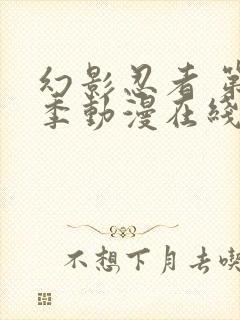 幻影忍者 第
季動漫在綫
不想下月去喫